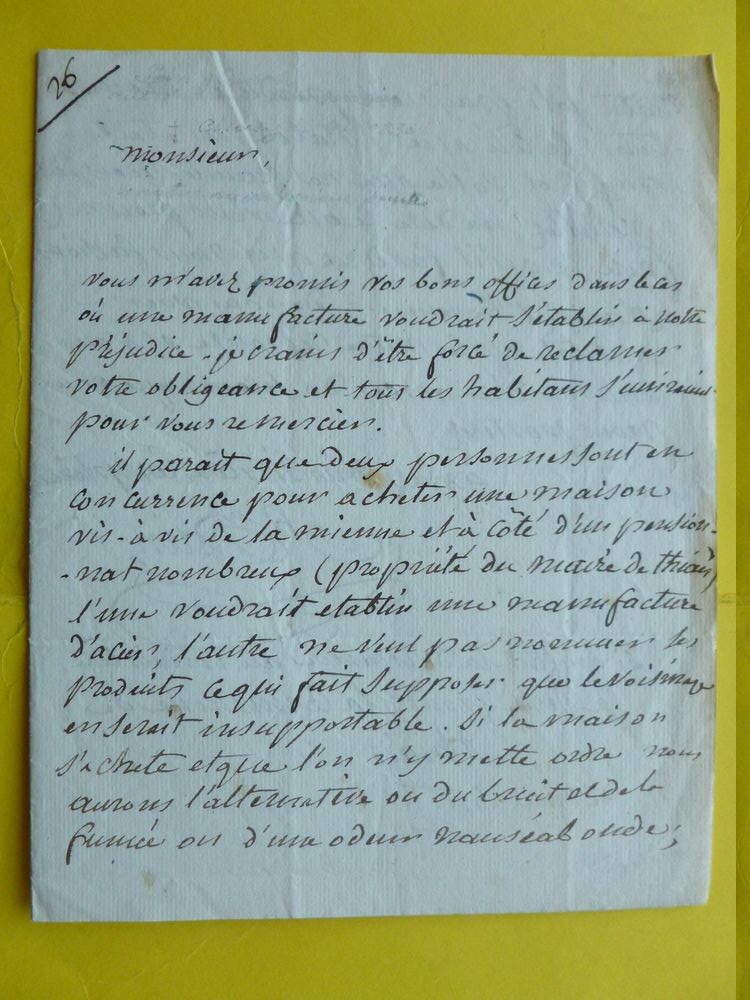 26
Monsieur,
vous m'avez promis vos bons offices dans le cas
où une manufacture voudrait s'établir à notre
préjudice. je crains d'être forcé de reclamer
votre obligeance et tous les habitans s'uniraient
pour vous remercier.
il parait que deux personnes sont en
concurrence pour acheter une maison
vis-à vis de la mienne et à côté d'un pension-
-nat nombreux (propriété du maire de thiais)
l'une voudrait etablir une manufacture
d'acier, l'autre ne veut pas nommer les
produits ce qui fait supposer que le voisinage
en serait insupportable. Si la maison
s'achete et que l'on n'y mette ordre nous
aurons l'alternative ou du bruit et de la
fumée ou d'une odeur nauséabonde;